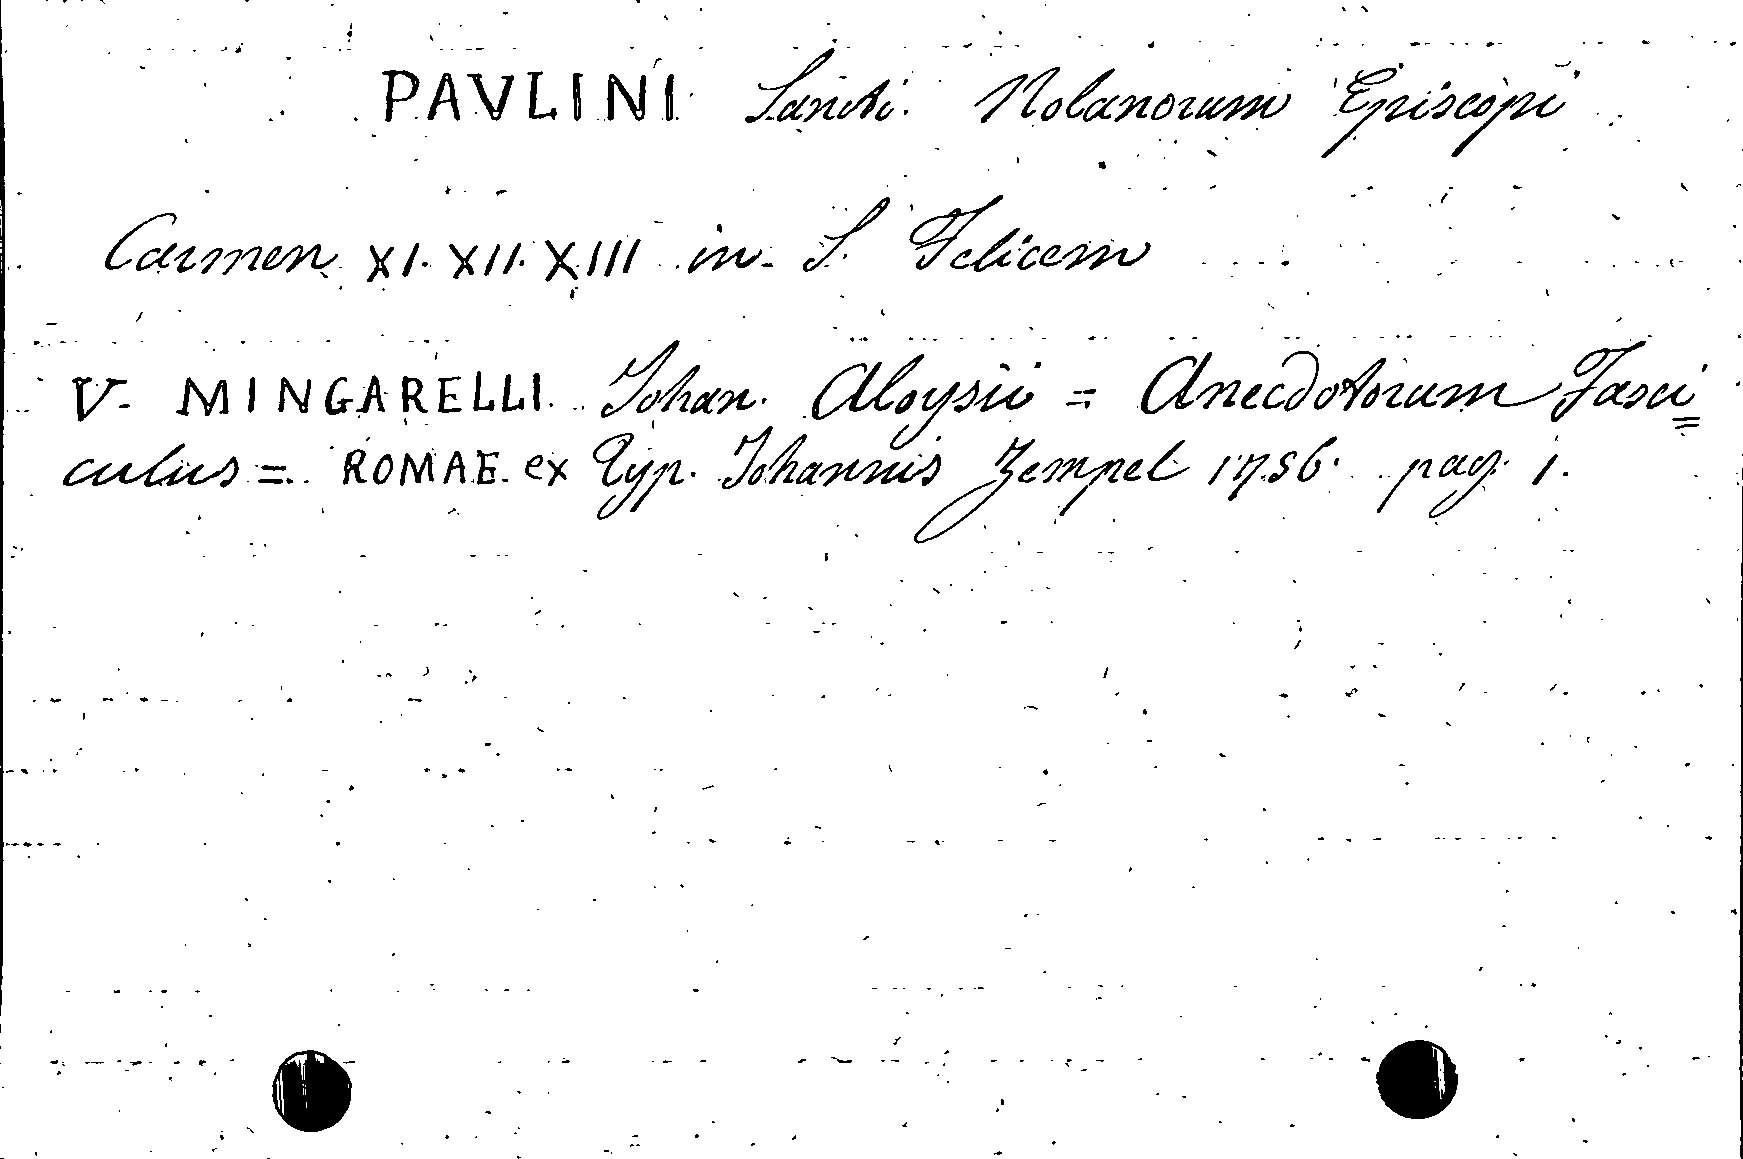 PAVLINI Sancti. Nolanorum Episcopi
Carmen XI. XII. XIII in S. Felicem
V. MINGARELLI Johan. Aloysii = Anecdotorum Fasci=
culus = ROMAE ex Typ. Johannis Zempel 1756. pag. 1.